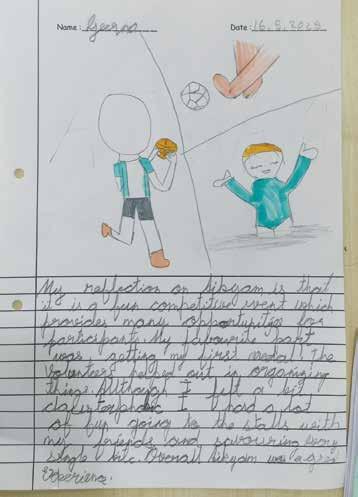 Name: Date: 16.5.2025
My reflection on is that
it is a fun competitive event which
provides many opportunities for
participants. My favourite part
was getting my first medal. The
volunteers helped out in organizing
things. Although I felt a bit
I had a lot
of fun going to the stalls with
my friends and savouring every
single bite. Overall was a great
experience.